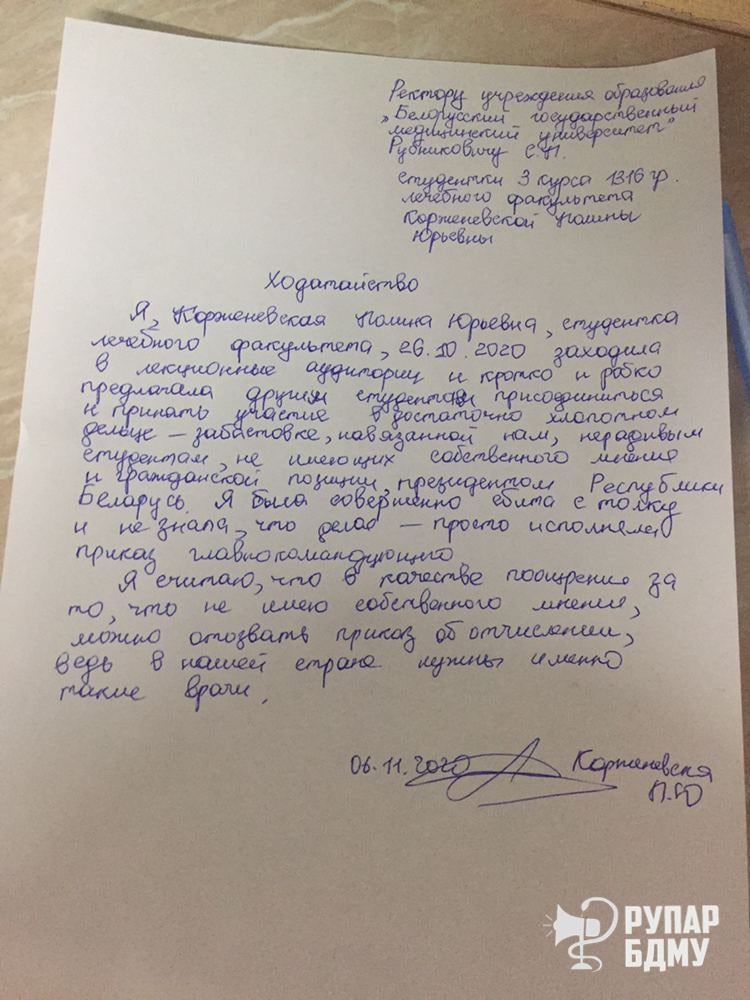 Ректору учреждения образования
„Белорусский государственный
медицинский университет"
Рубниковичу С.П.
студентки 3 курса 1316 гр.
лечебного факультета
Корженевской Полины
Юрьевны
Ходатайство
Я, Корженевская Полина Юрьевна, студентка
лечебного факультета, 26.10.2020 заходила
в лекционные аудитории и кротко и робко
предлагала другим студентам присоединиться
и принять участие в достаточно хлопотном
дельце – забастовке, навязанной нам, нерадивым
студентам, не имеющих собственного мнения
и гражданской позиции, президентом Республики
Беларусь. Я была совершенно сбита с толку
и не знала, что делаю – просто исполняла
приказ главнокомандующего
Я считаю, что в качестве поощрения за
то, что не имею собственного мнения,
можно отозвать приказ об отчислении,
ведь в нашей стране нужны именно
такие врачи.
06.11.2020 Корженевская
П.Ю
РУПАР
БДМУ